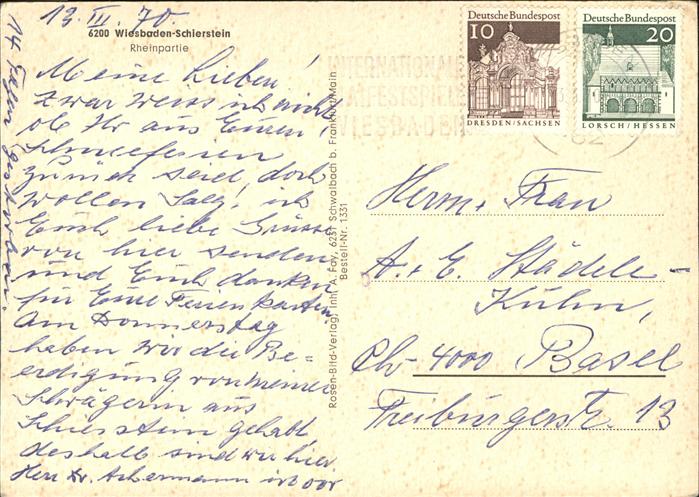 13. III. 70.
6200 Wiesbaden-Schierstein
Rheinpartie
Meine Lieben!
Zwar weiss ich nicht
ob Ihr aus Euren
Schneeferien
zurück seid, doch
wollen Salg! ich
Euch liebe Grüsse
von hier senden
und Euch danken
für Eure Ferienkarten.
Am Donnerstag
haben wir die Be=
erdigung von meiner
Schwägerin aus
Schierstein gehabt,
deshalb sind wir hier
Herr Dr. Ackermann ist vor
14 Tagen gestorben.
Rosen-Bild-Verlag, Inh. A. Fay, 6231 Schwalbach b. Frankfurt/Main
Bestell-Nr. 1331
Deutsche Bundespost
10
DRESDEN/SACHSEN
Deutsche Bundespost
20
LORSCH/HESSEN
INTERNATIONALE
WIESBADEN
62
Herrn + Frau
A. + E. Städele-
Kühn,
Ch-4000 Basel
Freiburgerstr. 13